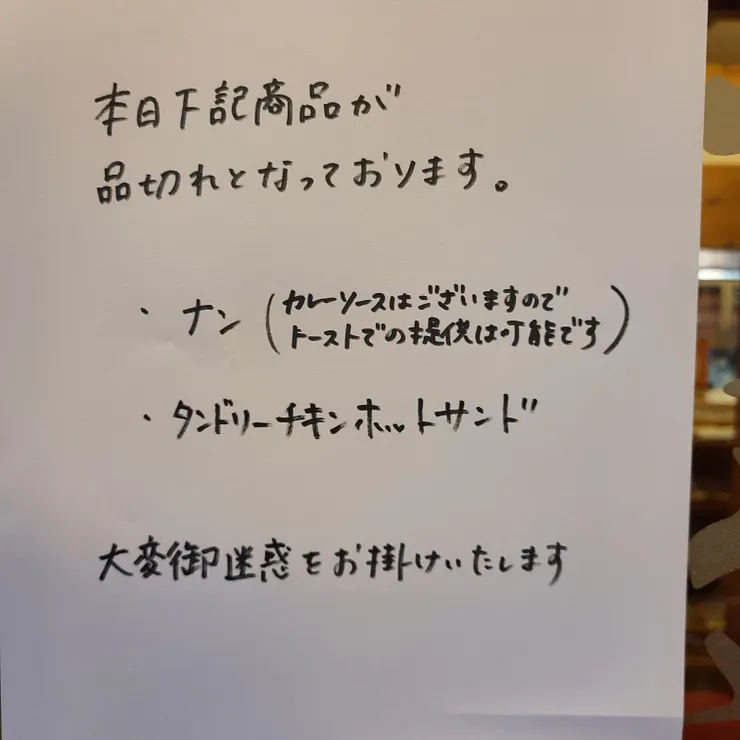 本日下記商品が
品切れとなっております。
・ナン(カレーソースはございますので
トーストでの提供は可能です)
・タンドリーチキンホットサンド
大変御迷惑をお掛けいたします